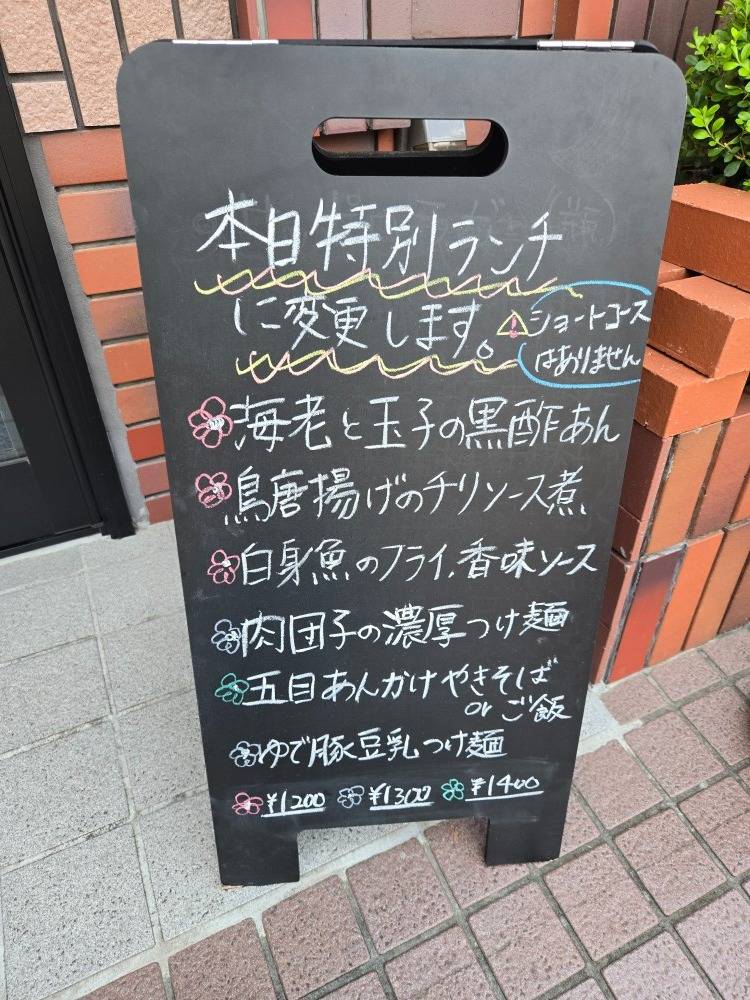 本日特別ランチ
に変更します。
⚠ショートコース
はありません
海老と玉子の黒酢あん
鳥唐揚げのチリソース煮
白身魚のフライ、香味ソース
肉団子の濃厚つけ麺
五目あんかけやきそば
or ご飯
ゆで豚豆乳つけ麺
¥1200 ¥1300 ¥1400